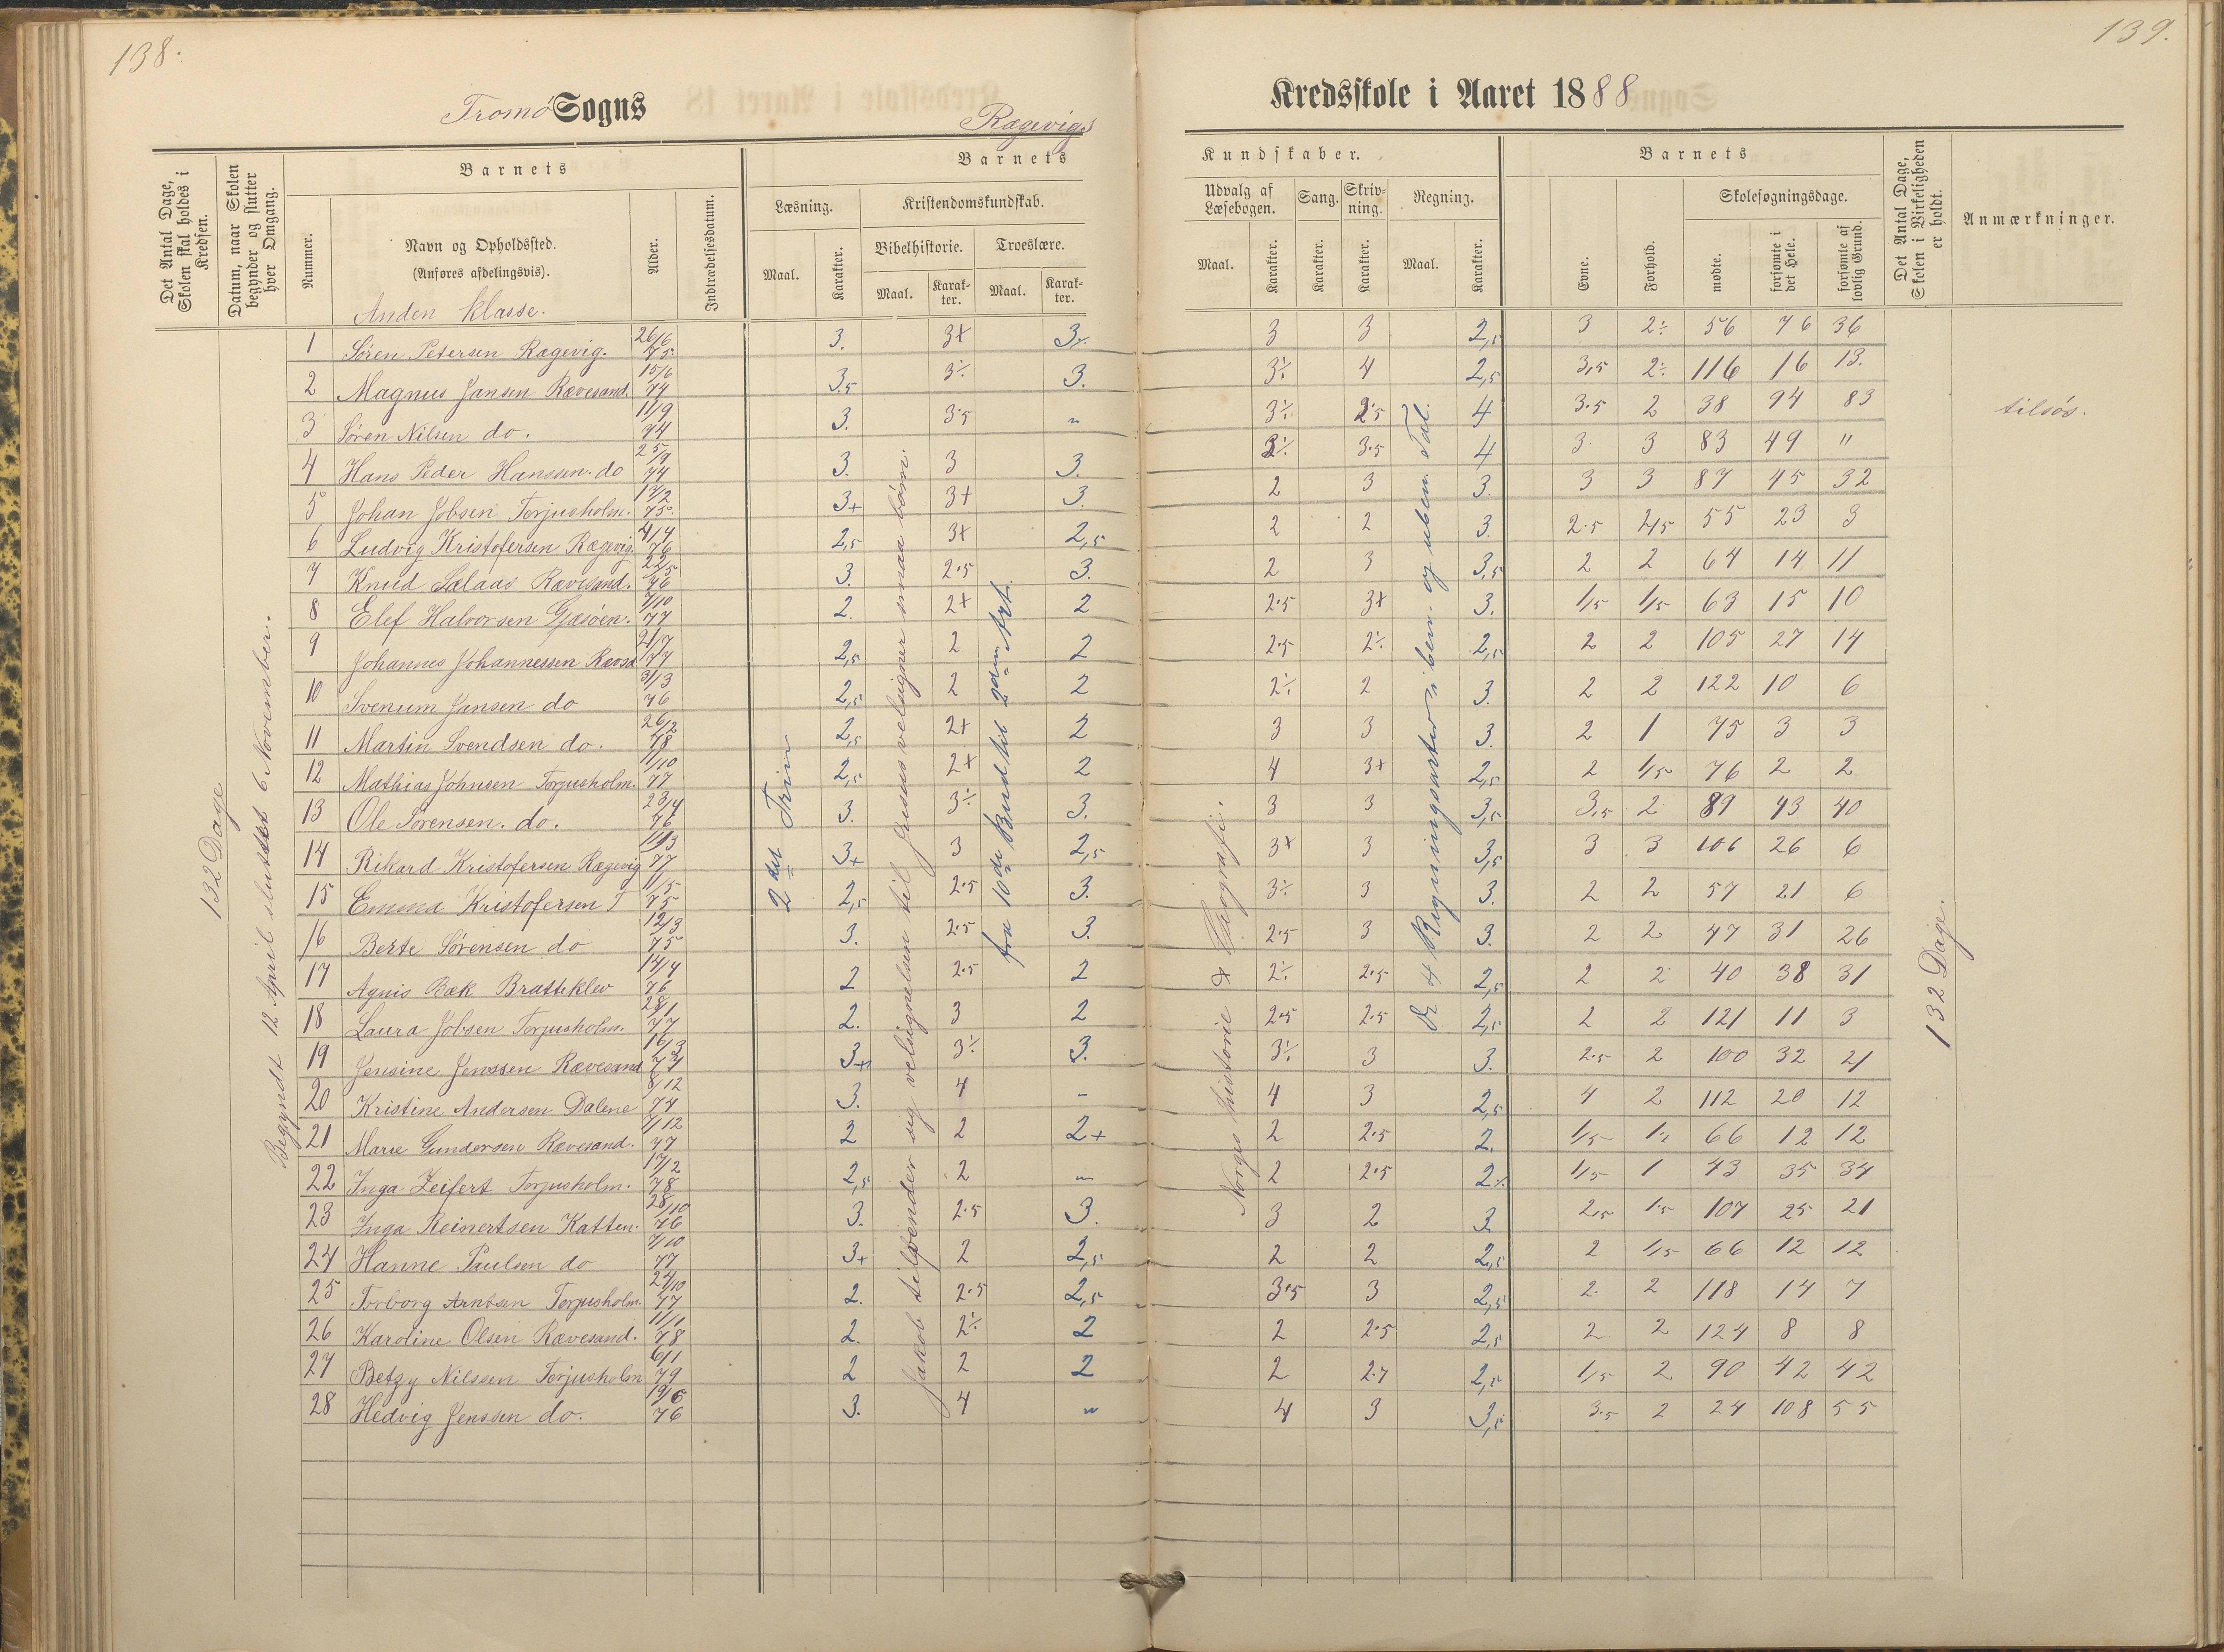 138.
139.
Tromø Sogns
Rægevigs
Kredsskole i Aaret 1888
Det Antal Dage, Skolen skal holdes i Kredsen.
Datum, naar Skolen begynder og slutter hver Omgang.
Barnets
Nummer.
Navn og Opholdssted.
(Anføres afdelingsvis).
Alder.
Indtrædelsesdatum.
Barnets
Læsning.
Maal.
Karakter.
Kristendomskundskab.
Bibelhistorie.
Maal.
Karak-
ter.
Troeslære.
Maal.
Karak-
ter.
Kundskaber.
Udvalg af
Læsebogen.
Maal.
Karakter.
Sang.
Karakter.
Skriv-
ning.
Karakter.
Regning.
Maal.
Karakter.
Barnets
Evne.
Forhold.
Skolesøgningsdage.
mødte.
forsømte i det Hele.
forsømte af lovlig Grund.
Det Antal Dage, Skolen i Virkeligheden er holdt.
Anmærkninger.
132 Dage
Begyndt 12 April sluttet 6 November.
2det Trin
Jakob tilvender sig velsignelsen til Jesus velsigner smaa børn.
fra 10de Bud til 2den Art.
Norges historie & Geografi.
De 4 Regningsarter i ben. og uben. Tal.
132 Dage.
Anden Klasse.
1 Søren Petersen Rægevig. 26/6 75. 3. 3+ 3÷ 3 3 2,5 3 2÷ 56 76 36
2 Magnus Jansen Rævesand. 15/6 74 3.5 3÷ 3. 3÷ 4 2,5 3,5 2÷ 116 16 13.
3 Søren Nilsen do. 11/9 74 3. 3.5 " 3÷ 2.5 4 3.5 2 38 94 83 tilsøs.
4 Hans Peder Hanssen. do 25/9 74 3. 3 3. 3÷ 3.5 4 3. 3 83 49 "
5 Johan Jobsen Torjusholm. 17/2 75. 3+ 3+ 3. 2 3 3. 3 3 87 45 32
6 Ludvig Kristofersen Rægevig. 4/4 76 2,5 3+ 2,5 2 2 3. 2.5 2/5 55 23 3
7 Knud Salaas Rævesand. 22/5 76 3. 2.5 3. 2 3 3,5 2 2 64 14 11
8 Elef Halvorsen Gjæsøen. 7/10 77 2. 2+ 2 2.5 3+ 3. 1/5 1/5 63 15 10
9 Johannes Johannessen Rævsd 21/7 77 2,5 2 2 2.5 2÷ 2,5 2 2 105 27 14
10 Svenum Jansen do 31/3 76 2,5 2 2 2÷ 2 3. 2 2 122 10 6
11 Martin Svendsen do. 26/2 78 2,5 2+ 2 3 3 3. 2 1 75 3 3
12 Mathias Johnsen Torjusholm. 11/10 77 2,5 2+ 2 4 3+ 2,5 2 1/5 76 2 2
13 Ole Sørensen. do. 23/4 76 3. 3÷ 3. 3 3 3,5 3,5 2 89 43 40
14 Rikard Kristofersen Rægevig 11/3 77 3+ 3 2,5 3+ 3 3,5 3 3 106 26 6
15 Emma Kristofersen T 11/5 75 2,5 2.5 3. 3÷ 3 3. 2 2 57 21 6
16 Berte Sørensen do 12/3 75 3. 2.5 3. 2.5 3 3. 2 2 47 31 26
17 Agnis Bæk Bratteklev 14/4 76 2 2.5 2 2÷ 2.5 2,5 2 2 40 38 31
18 Laura Jobsen Torjusholm. 28/1 77 2. 3 2 2.5 2.5 2,5 2 2 121 11 3
19 Jensine Jenssen Rævesand 16/3 77 3+ 3÷ 3. 3÷ 3 3. 2.5 2 100 32 21
20 Kristine Andersen Dalene 8/12 74 3. 4 - 4 3 2,5 4 2 112 20 12
21 Marie Gundersen Rævesand. 7/12 77 2 2 2+ 2 2.5 2. 1/5 1÷ 66 12 12
22 Inga Zeifert Torjusholm. 17/2 78 2,5 2 " 2 2.5 2÷ 1/5 1 43 35 34
23 Inga Reinertsen Katten. 28/10 76 3. 2.5 3. 3 2 3. 2,5 1.5 107 25 21
24 Hanne Paulsen do 7/10 77 3+ 2 2,5 2 2 2,5 2 1/5 66 12 12
25 Torborg Arntsen Torjusholm. 24/10 77 2. 2.5 2,5 3.5 3 2,5 2. 2 118 14 7
26 Karoline Olsen Rævesand. 11/1 78 2. 2÷ 2 2 2.5 2,5 2 2 124 8 8
27 Betzy Nilssen Torjusholm 6/1 79 2 2 2 2 2.7 2,5 1/5 2 90 42 42
28 Hedvig Jenssen do. 19/6 76 3. 4 " 4 3 3,5 3.5 2 24 108 55